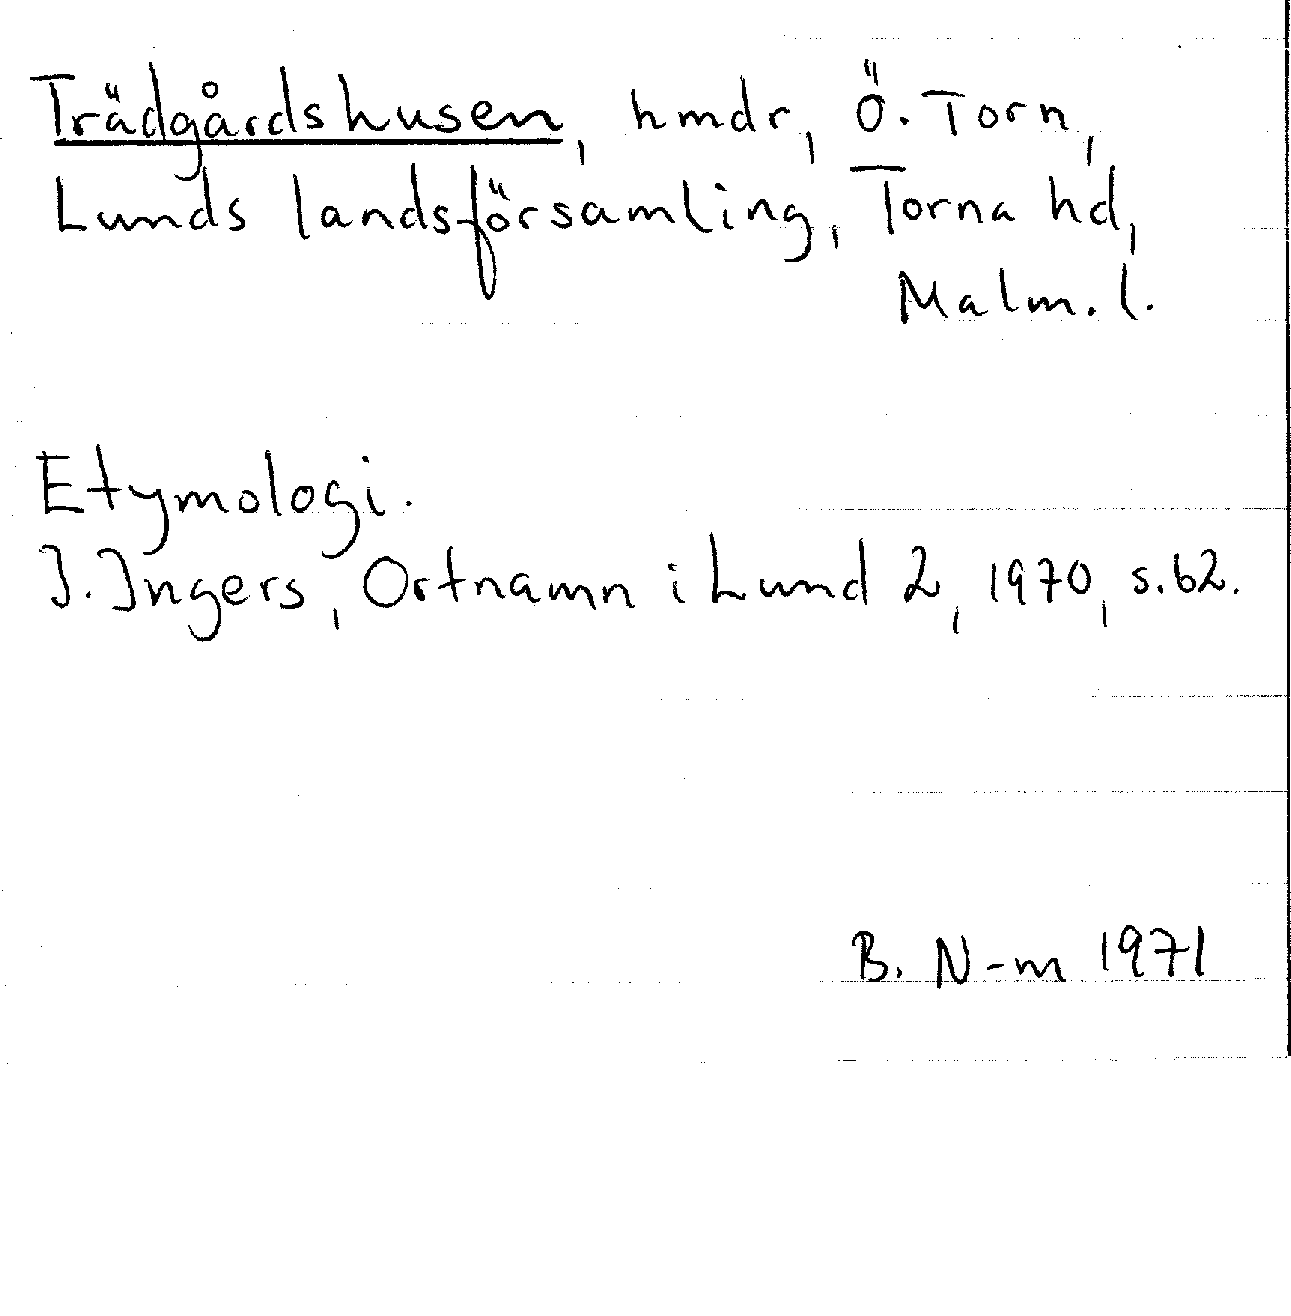 Trädgårdshusen, hmdr, Ö. Torn,
Lunds landsförsamling, Torna hd,
Malm. l.
Etymologi.
I. Ingers, Ortnamn i Lund 2, 1970, s. 62.
B. N-m 1971